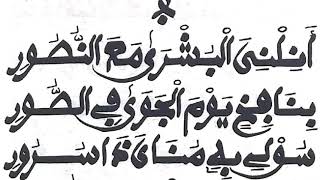 أَنِلْنِيَ الْبُشْرَى مَعَ النُّطُورِ
بِنَافِخٍ يَوْمَ الْجَوَى فِي الصُّورِ
سَوْلِي بِهِ مُنَايَ ذَا سُرُورِ